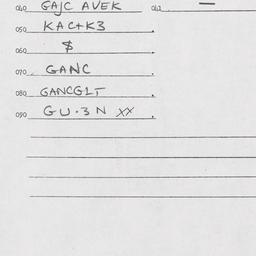 040 GAJC AVEK 042 —
050 KAC+K3
060 $
070 GANC
080 GANCG1T
090 GU.3N XX